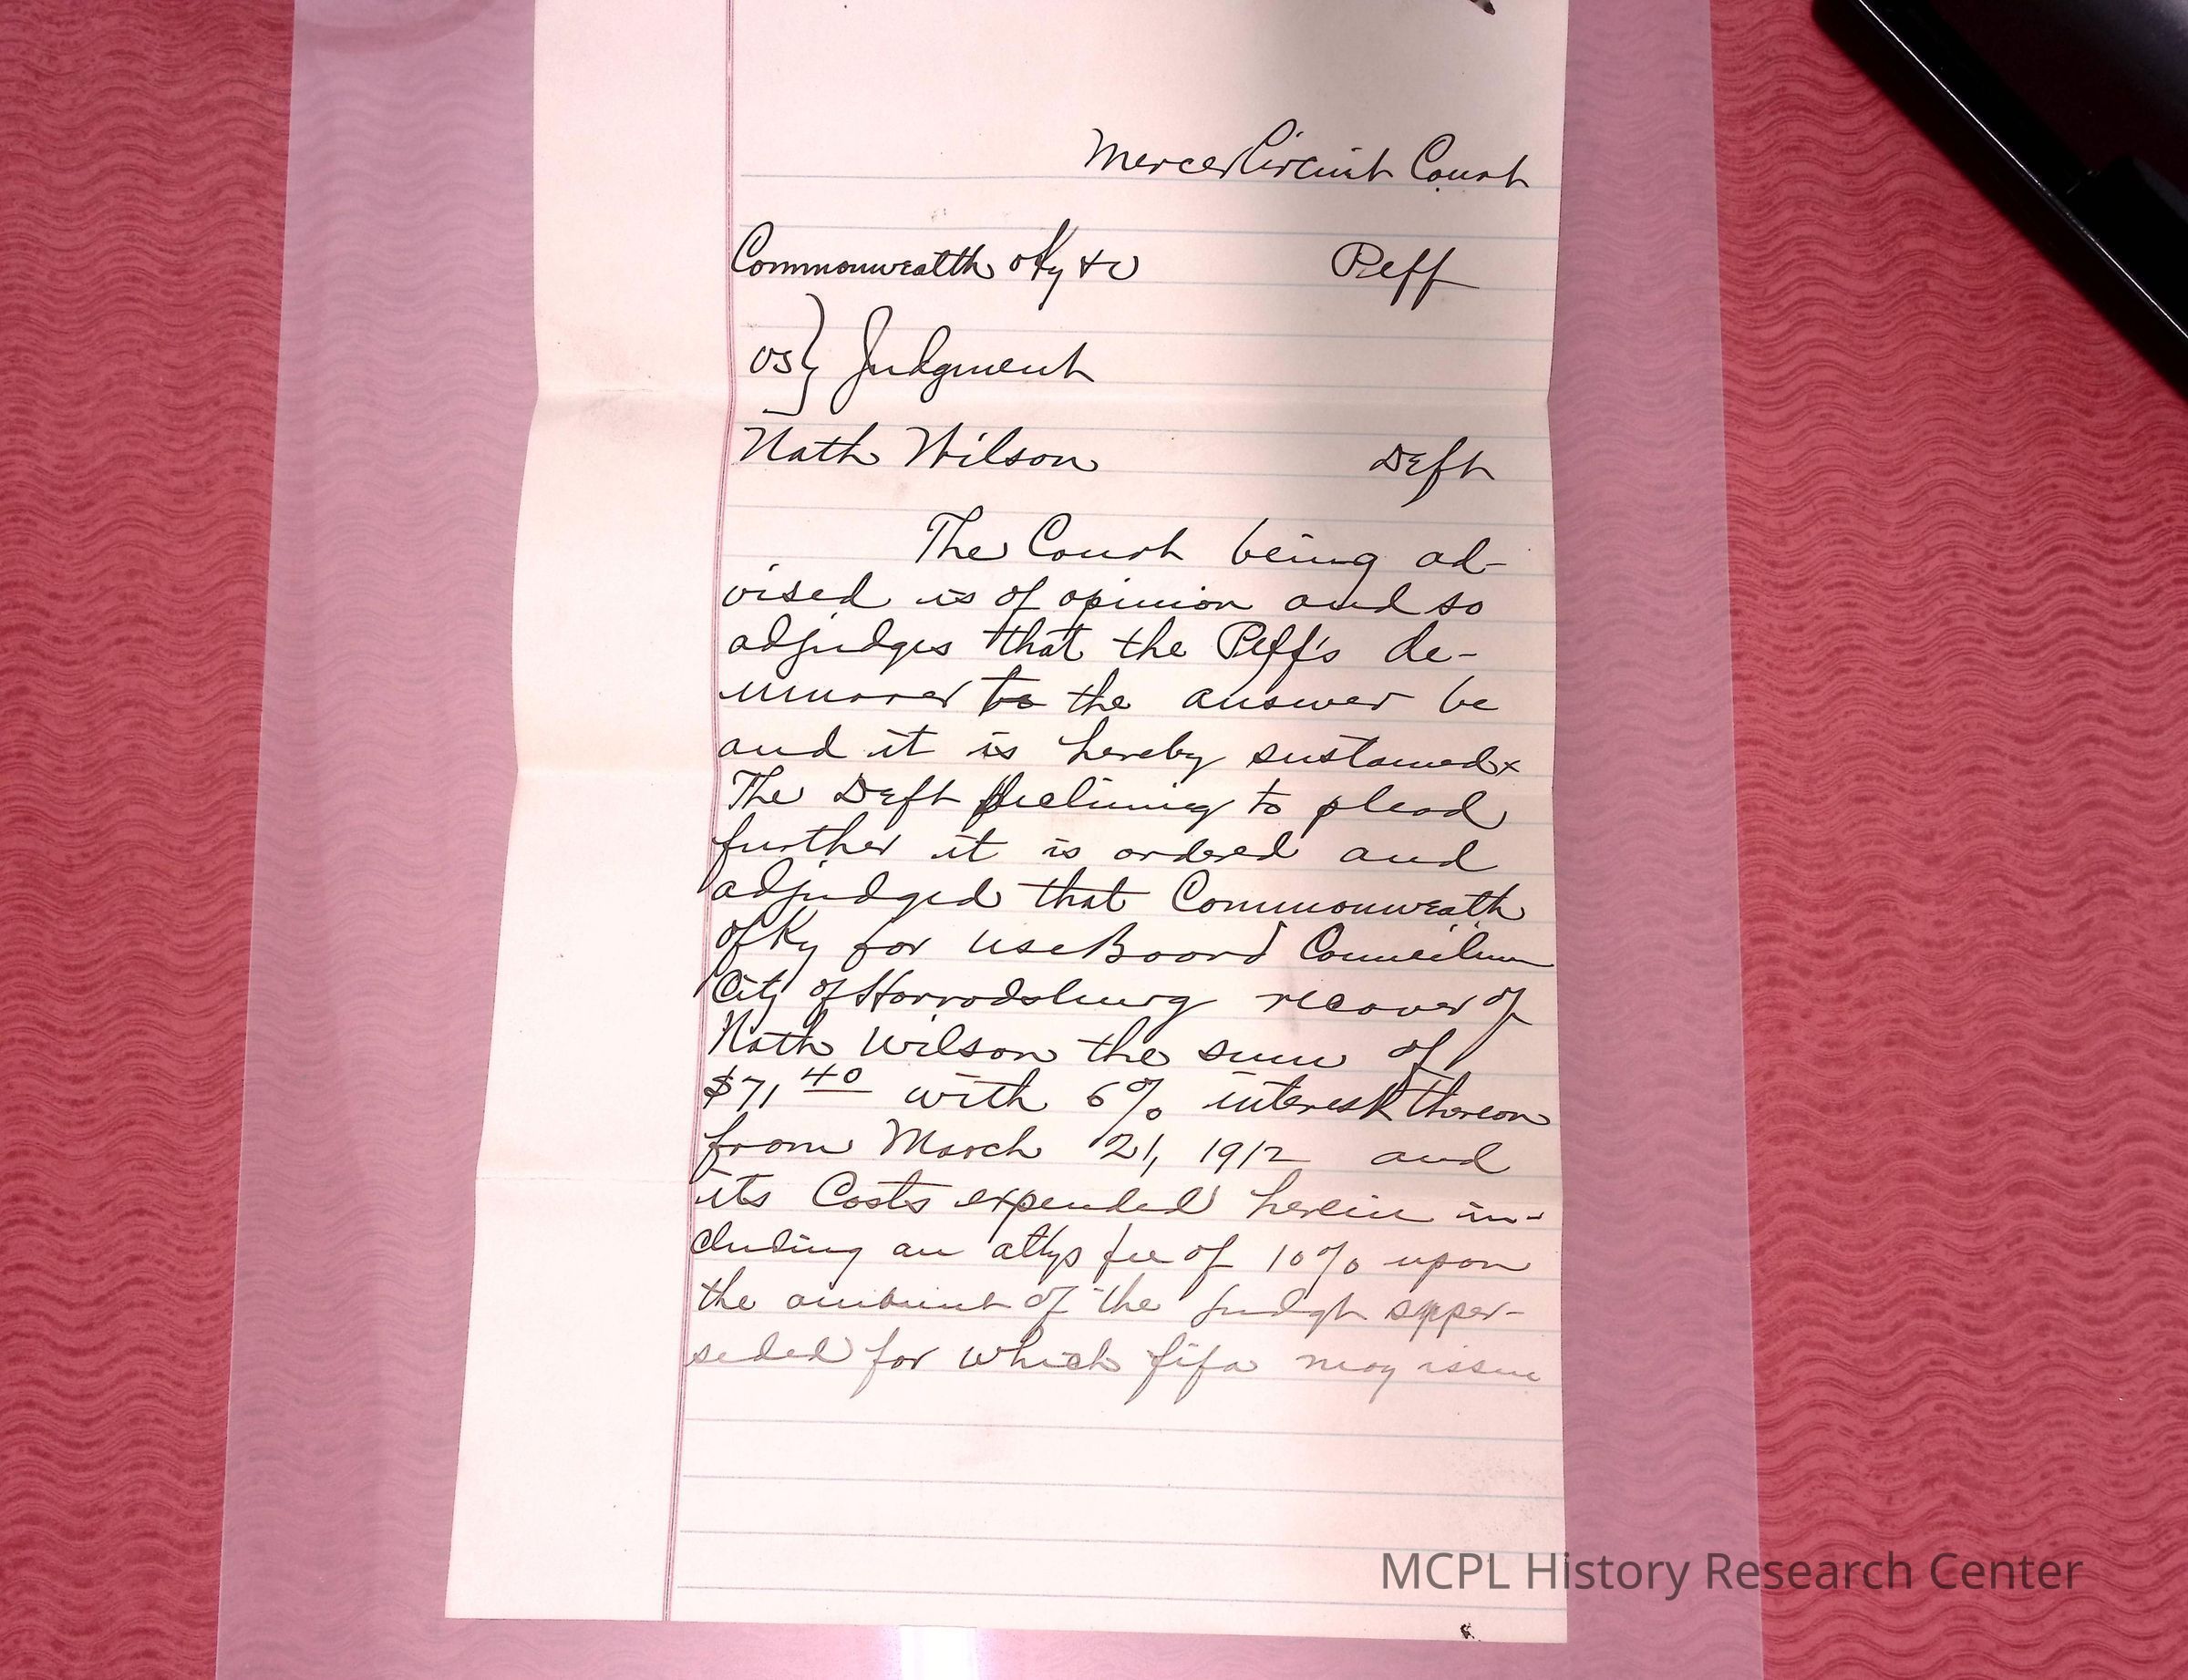 Mercer Circuit Court
Commonwealth of Ky &c Plff
vs} Judgment
Nath Wilson Deft
The Court being ad-
vised is of opinion and so
adjudges that the Plff's de-
murrer to the answer be
and it is hereby sustained x
The Deft declining to plead
further it is ordered and
adjudged that Commonweath
of Ky for use Board Councilmen
City of Harrodsburg recover of
Nath Wilson the sum of
$71 40 with 6% interest thereon
from March 21, 1912 and
its Costs expended herein in-
cluding an attys fee of 10% upon
the amount of the Judgt
seded for which fifa may issue
MCPL History Research Center